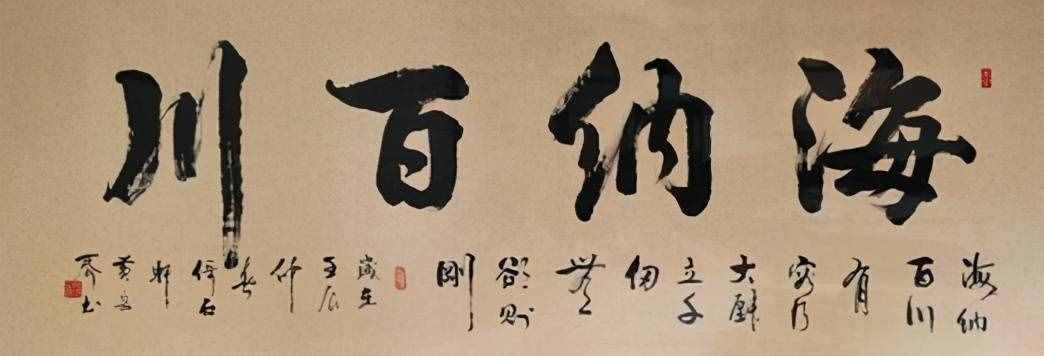 海纳百川
海纳
百川
有
容乃
大壁
立千
仞
無
欲则
剛
歲在
壬辰
仲
春
倚石
轩
黄
书